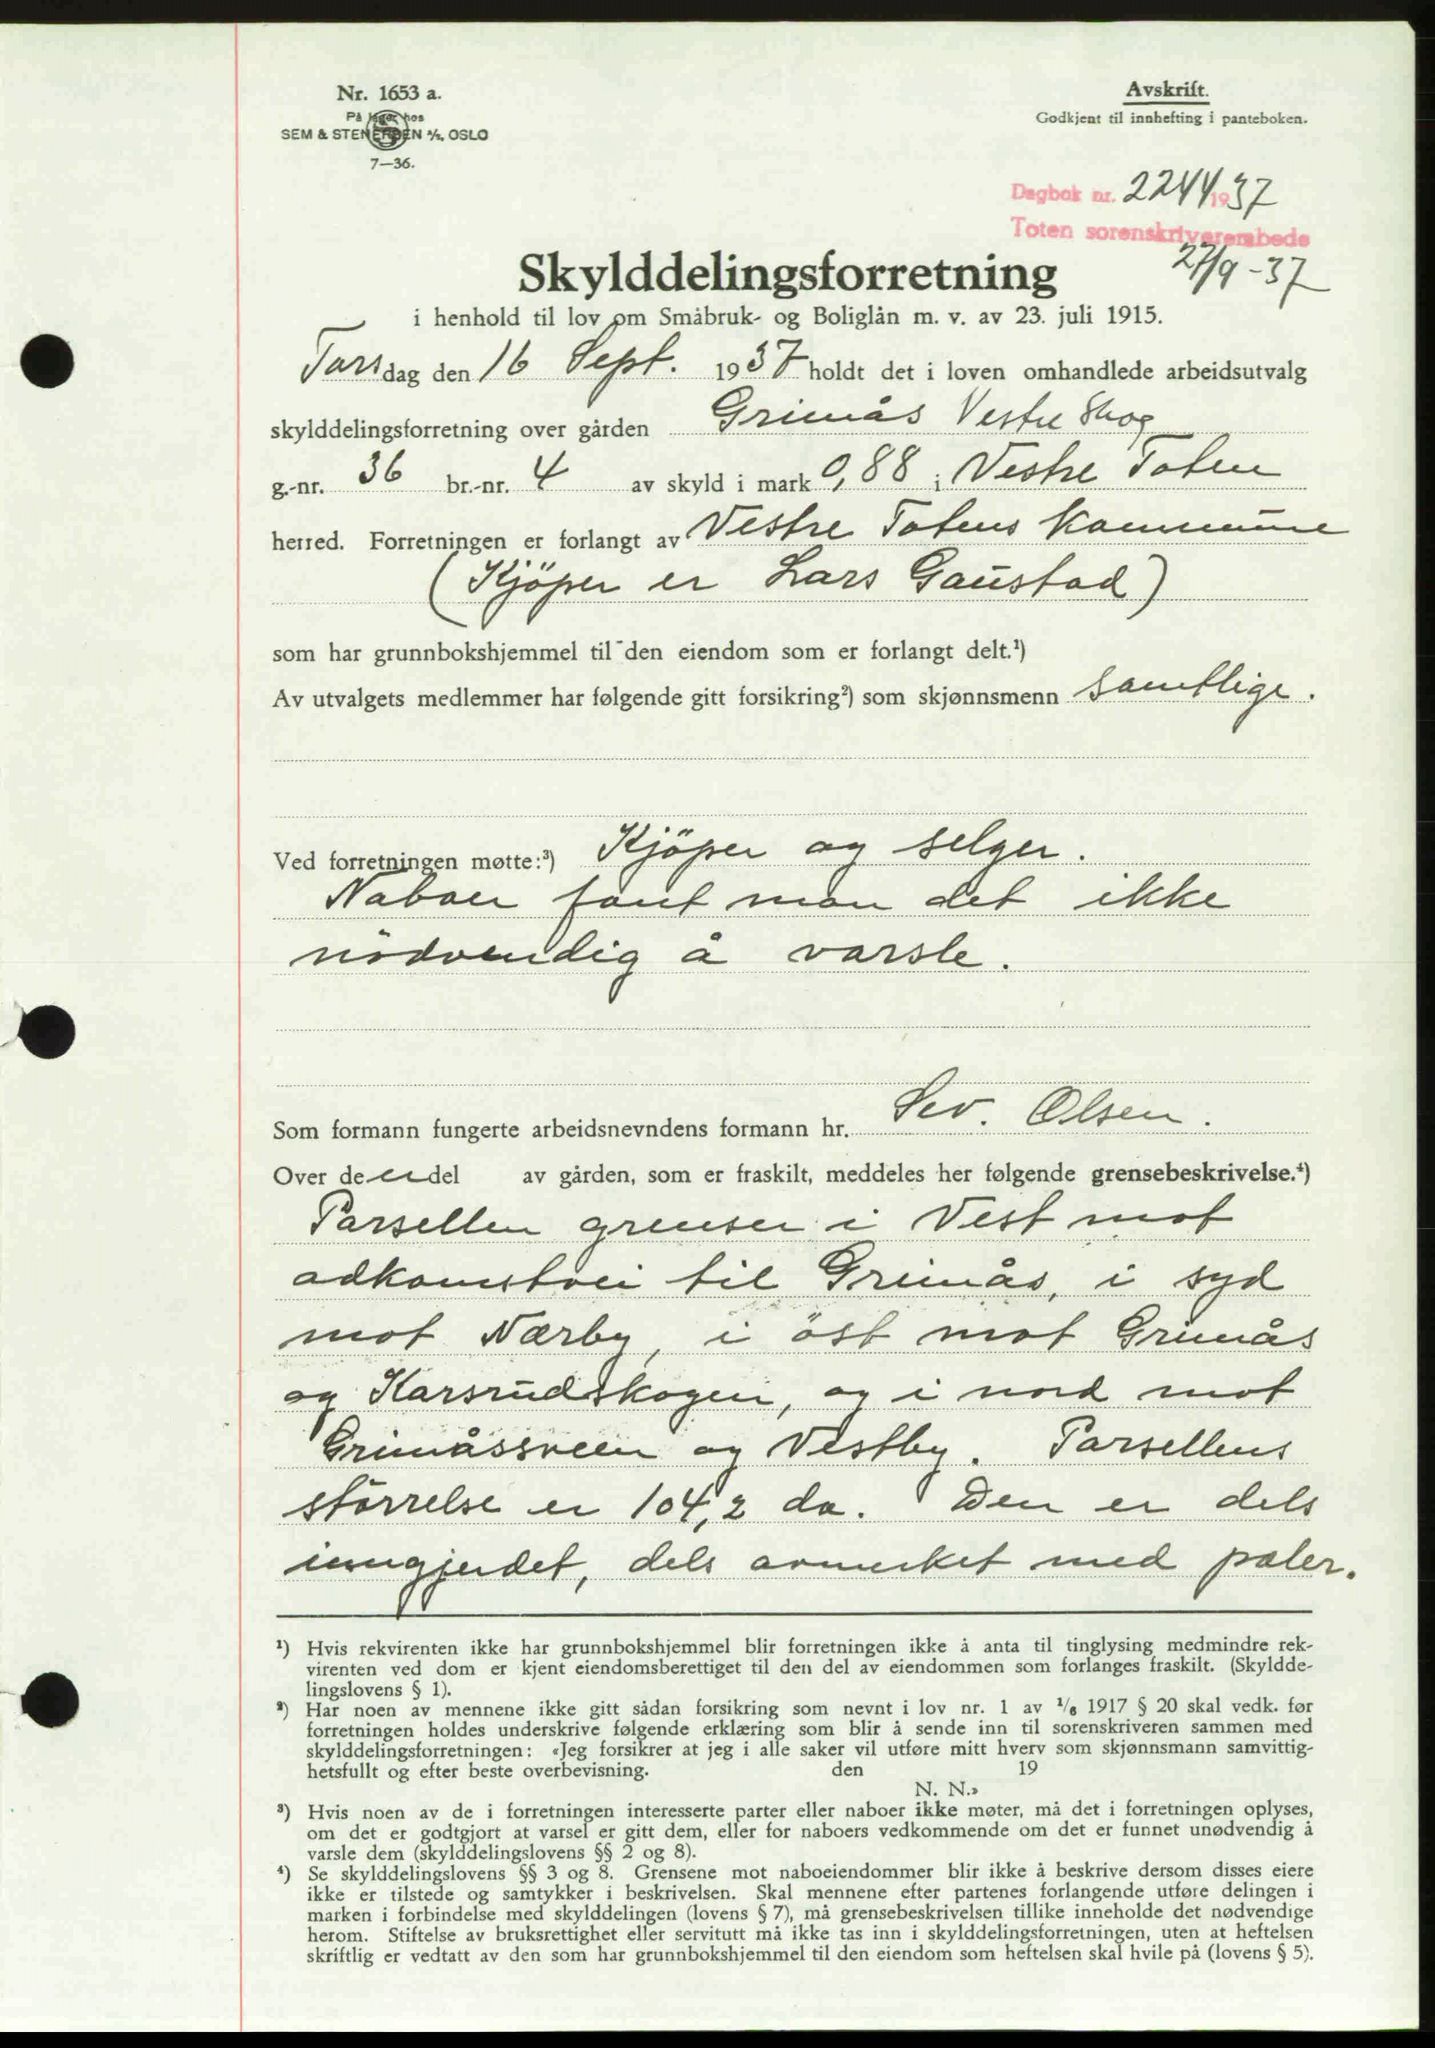 Nr. 1653 a.
På lager hos
SEM & STENERSEN A/S, OSLO
7—36.
Avskrift.
Godkjent til innhefting i panteboken.
Dagbok nr. 2244 1937
Toten sorenskriverembede
27/9-37
Skylddelingsforretning
i henhold til lov om Småbruk- og Boliglån m. v. av 23. juli 1915.
Torsdag den 16 Sept. 1937 holdt det i loven omhandlede arbeidsutvalg
skylddelingsforretning over gården Grimås Vestre Skog
g.-nr. 36 br.-nr. 4 av skyld i mark 0,88 i Vestre Toten
herred. Forretningen er forlangt av Vestre Totens Kommune
(Kjöper er Lars Gaustad)
som har grunnbokshjemmel til den eiendom som er forlangt delt.¹)
Av utvalgets medlemmer har følgende gitt forsikring²) som skjønnsmenn samtlige.
Ved forretningen møtte:³) Kjöper og selger.
Naboer fant man det ikke
nödvendig å varsle.
Som formann fungerte arbeidsnevndens formann hr. Sev. Olsen.
Over den del av gården, som er fraskilt, meddeles her følgende grensebeskrivelse.⁴)
Parsellen grenser i Vest mot
adkomstvei til Grimås, i syd
mot Nærby, i öst mot Grimås
og Karsrudskogen, og i nord mot
Grimåssveen og Vestby. Parsellens
störrelse er 104,2 da. Den er dels
inngjerdet, dels avmerket med pæler.
¹) Hvis rekvirenten ikke har grunnbokshjemmel blir forretningen ikke å anta til tinglysing medmindre rek-
virenten ved dom er kjent eiendomsberettiget til den del av eiendommen som forlanges fraskilt. (Skyldde-
lingslovens § 1).
²) Har noen av mennene ikke gitt sådan forsikring som nevnt i lov nr. 1 av 1/6 1917 § 20 skal vedk. før
forretningen holdes underskrive følgende erklæring som blir å sende inn til sorenskriveren sammen med
skylddelingsforretningen: «Jeg forsikrer at jeg i alle saker vil utføre mitt hverv som skjønnsmann samvittig-
hetsfullt og efter beste overbevisning. den 19
N. N.»
³) Hvis noen av de i forretningen interesserte parter eller naboer ikke møter, må det i forretningen oplyses,
om det er godtgjort at varsel er gitt dem, eller for naboers vedkommende om det er funnet unødvendig å
varsle dem (skylddelingslovens §§ 2 og 8).
⁴) Se skylddelingslovens §§ 3 og 8. Grensene mot naboeiendommer blir ikke å beskrive dersom disses eiere
ikke er tilstede og samtykker i beskrivelsen. Skal mennene efter partenes forlangende utføre delingen i
marken i forbindelse med skylddelingen (lovens § 7), må grensebeskrivelsen tillike inneholde det nødvendige
herom. Stiftelse av bruksrettighet eller servitutt må ikke tas inn i skylddelingsforretningen, uten at heftelsen
skriftlig er vedtatt av den som har grunnbokshjemmel til den eiendom som heftelsen skal hvile på (lovens § 5).